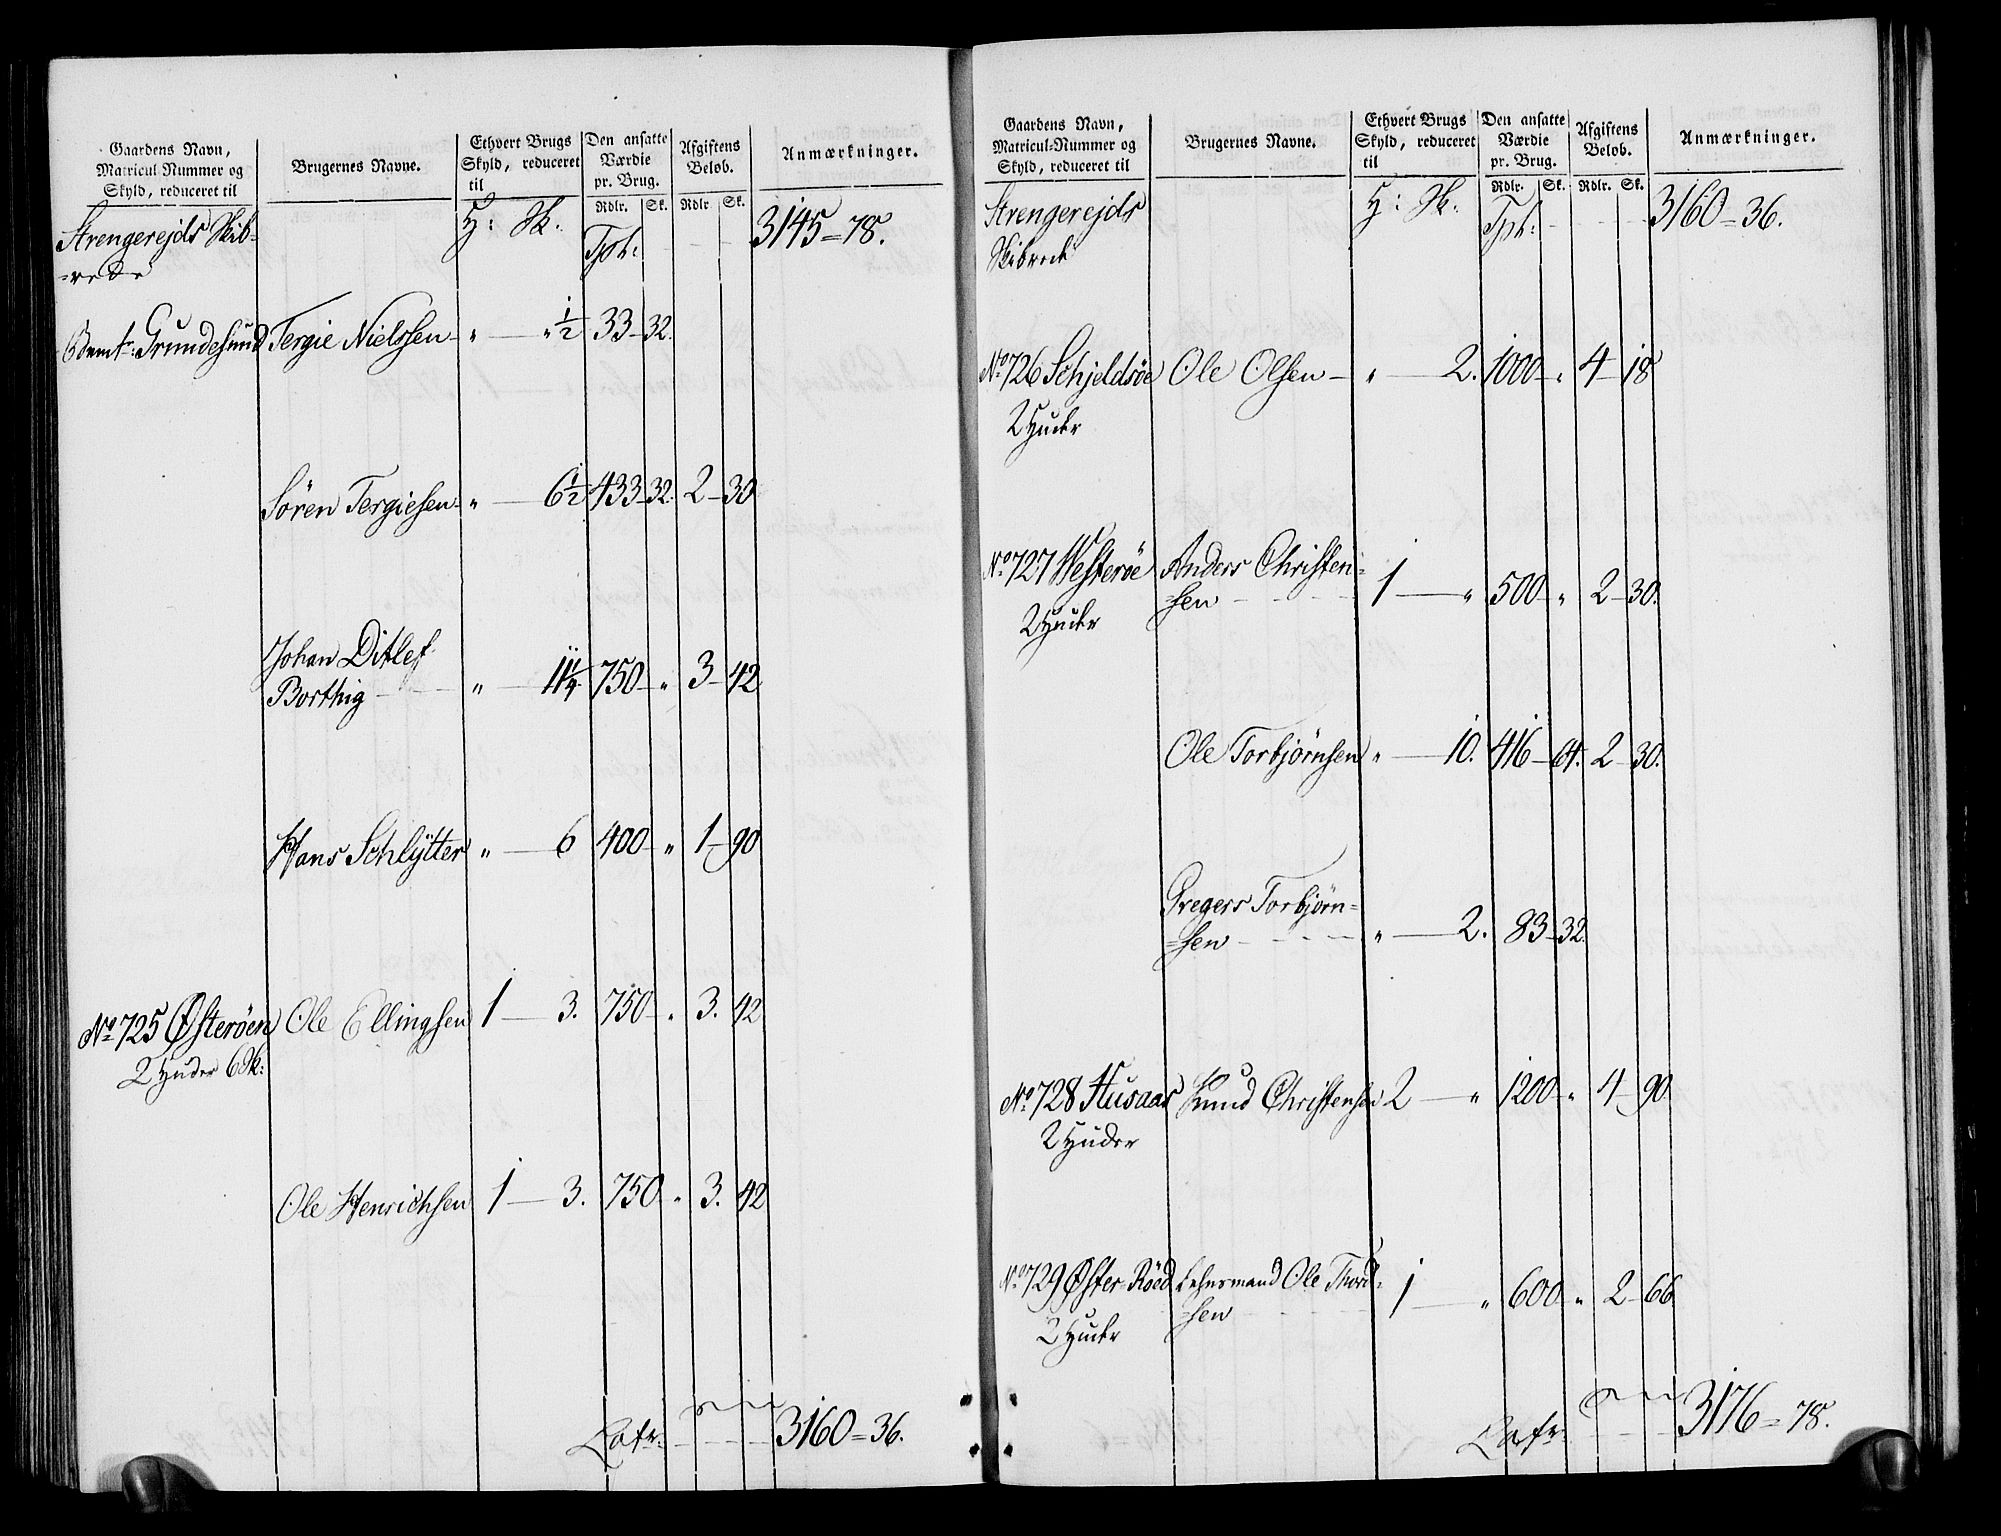 Gaardens Navn,
Matricul Nummer og
Skyld, reduceret til
Brugernes Navne.
Ethvert Brugs
Skyld, reduceret
til
Den ansatte
Værdie
pr. Brug.
Rdlr. Sk.
Afgiftens
Beløb.
Rdlr Sk.
Anmærkninger.
Strengerejds Skib-
=rede
H: Sk. Tpt: 3145=78.
Grundesund Tergie Nielssen " " ½ 33 32.
Sören Tergiesen " 6½ 433 32. 2 30
Johan Ditlef
Borthig " 11¼ 750 " 3 42
Hans Schlÿtter " 6 400 " 1 90
No 725 Østeröen Ole Ellingsen 1 3. 750 " 3. 42
2 Huder 6 Sk:
Ole Henrichsen 1 3. 750 " 3. 42
Latr: 3160=36.
Gaardens Navn,
Matricul-Nummer og
Skyld, reduceret til
Brugernes Navne.
Ethvert Brugs
Skyld, reduceret
til
Den ansatte
Værdie
pr. Brug.
Rdlr. Sk.
Afgiftens
Beløb.
Rdlr. Sk.
Anmærkninger.
Strengerejds
Skibrede
H: Sk. Tpt: 3160=36.
No 726 Schjeldsöe Ole Olsen " 2. 1000 " 4 18
2 Huder
No 727 Westeröe Anders Christen=
=sen 1 " 500 " 2 30.
2 Huder
Ole Torbjörnsen " 10. 416 64. 2 30.
Gregers Torbjörn=
=sen " 2. 83 32.
No 728 Husaas Knud Christensen 2 " 1200 " 4 90
2 Huder
No 729 Øster-Röed Lehnsmand Ole Thord=
=sen 1 " 600 " 2 66
2 Huder
Latr: 3176=78.